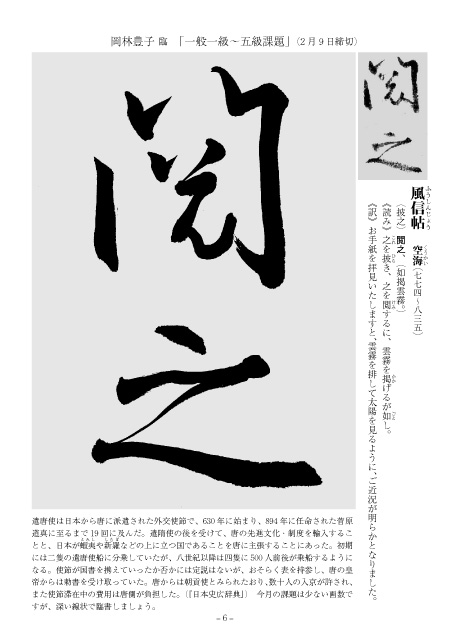 岡林豊子 臨 「一般一級～五級課題」（2月9日締切）
閲之
閲之
風信帖 空海（七七四～八三五）
ふうしんじょう くうかい
（披之）閲之、（如掲雲霧。）
《読み》之を披き、之を閲するに、雲霧を掲げるが如し。
《訳》お手紙を拝見いたしますと、雲霧を排して太陽を見るように、ご近況が明らかとなりました。
遣唐使は日本から唐に派遣された外交使節で、630年に始まり、894年に任命された菅原
道真に至るまで19回に及んだ。遣隋使の後を受けて、唐の先進文化・制度を輸入するこ
とと、日本が蝦夷や新羅などの上に立つ国であることを唐に主張することにあった。初期
には二隻の遣唐使船に分乗していたが、八世紀以降は四隻に500人前後が乗船するように
なる。使節が国書を携えていったか否かには定説はないが、おそらく表を持参し、唐の皇
帝からは勅書を受け取っていた。唐からは朝貢使とみられたおり、数十人の入京が許され、
また使節滞在中の費用は唐側が負担した。（『日本史広辞典』） 今月の課題は少ない画数で
すが、深い線状で臨書しましょう。
– 6 –